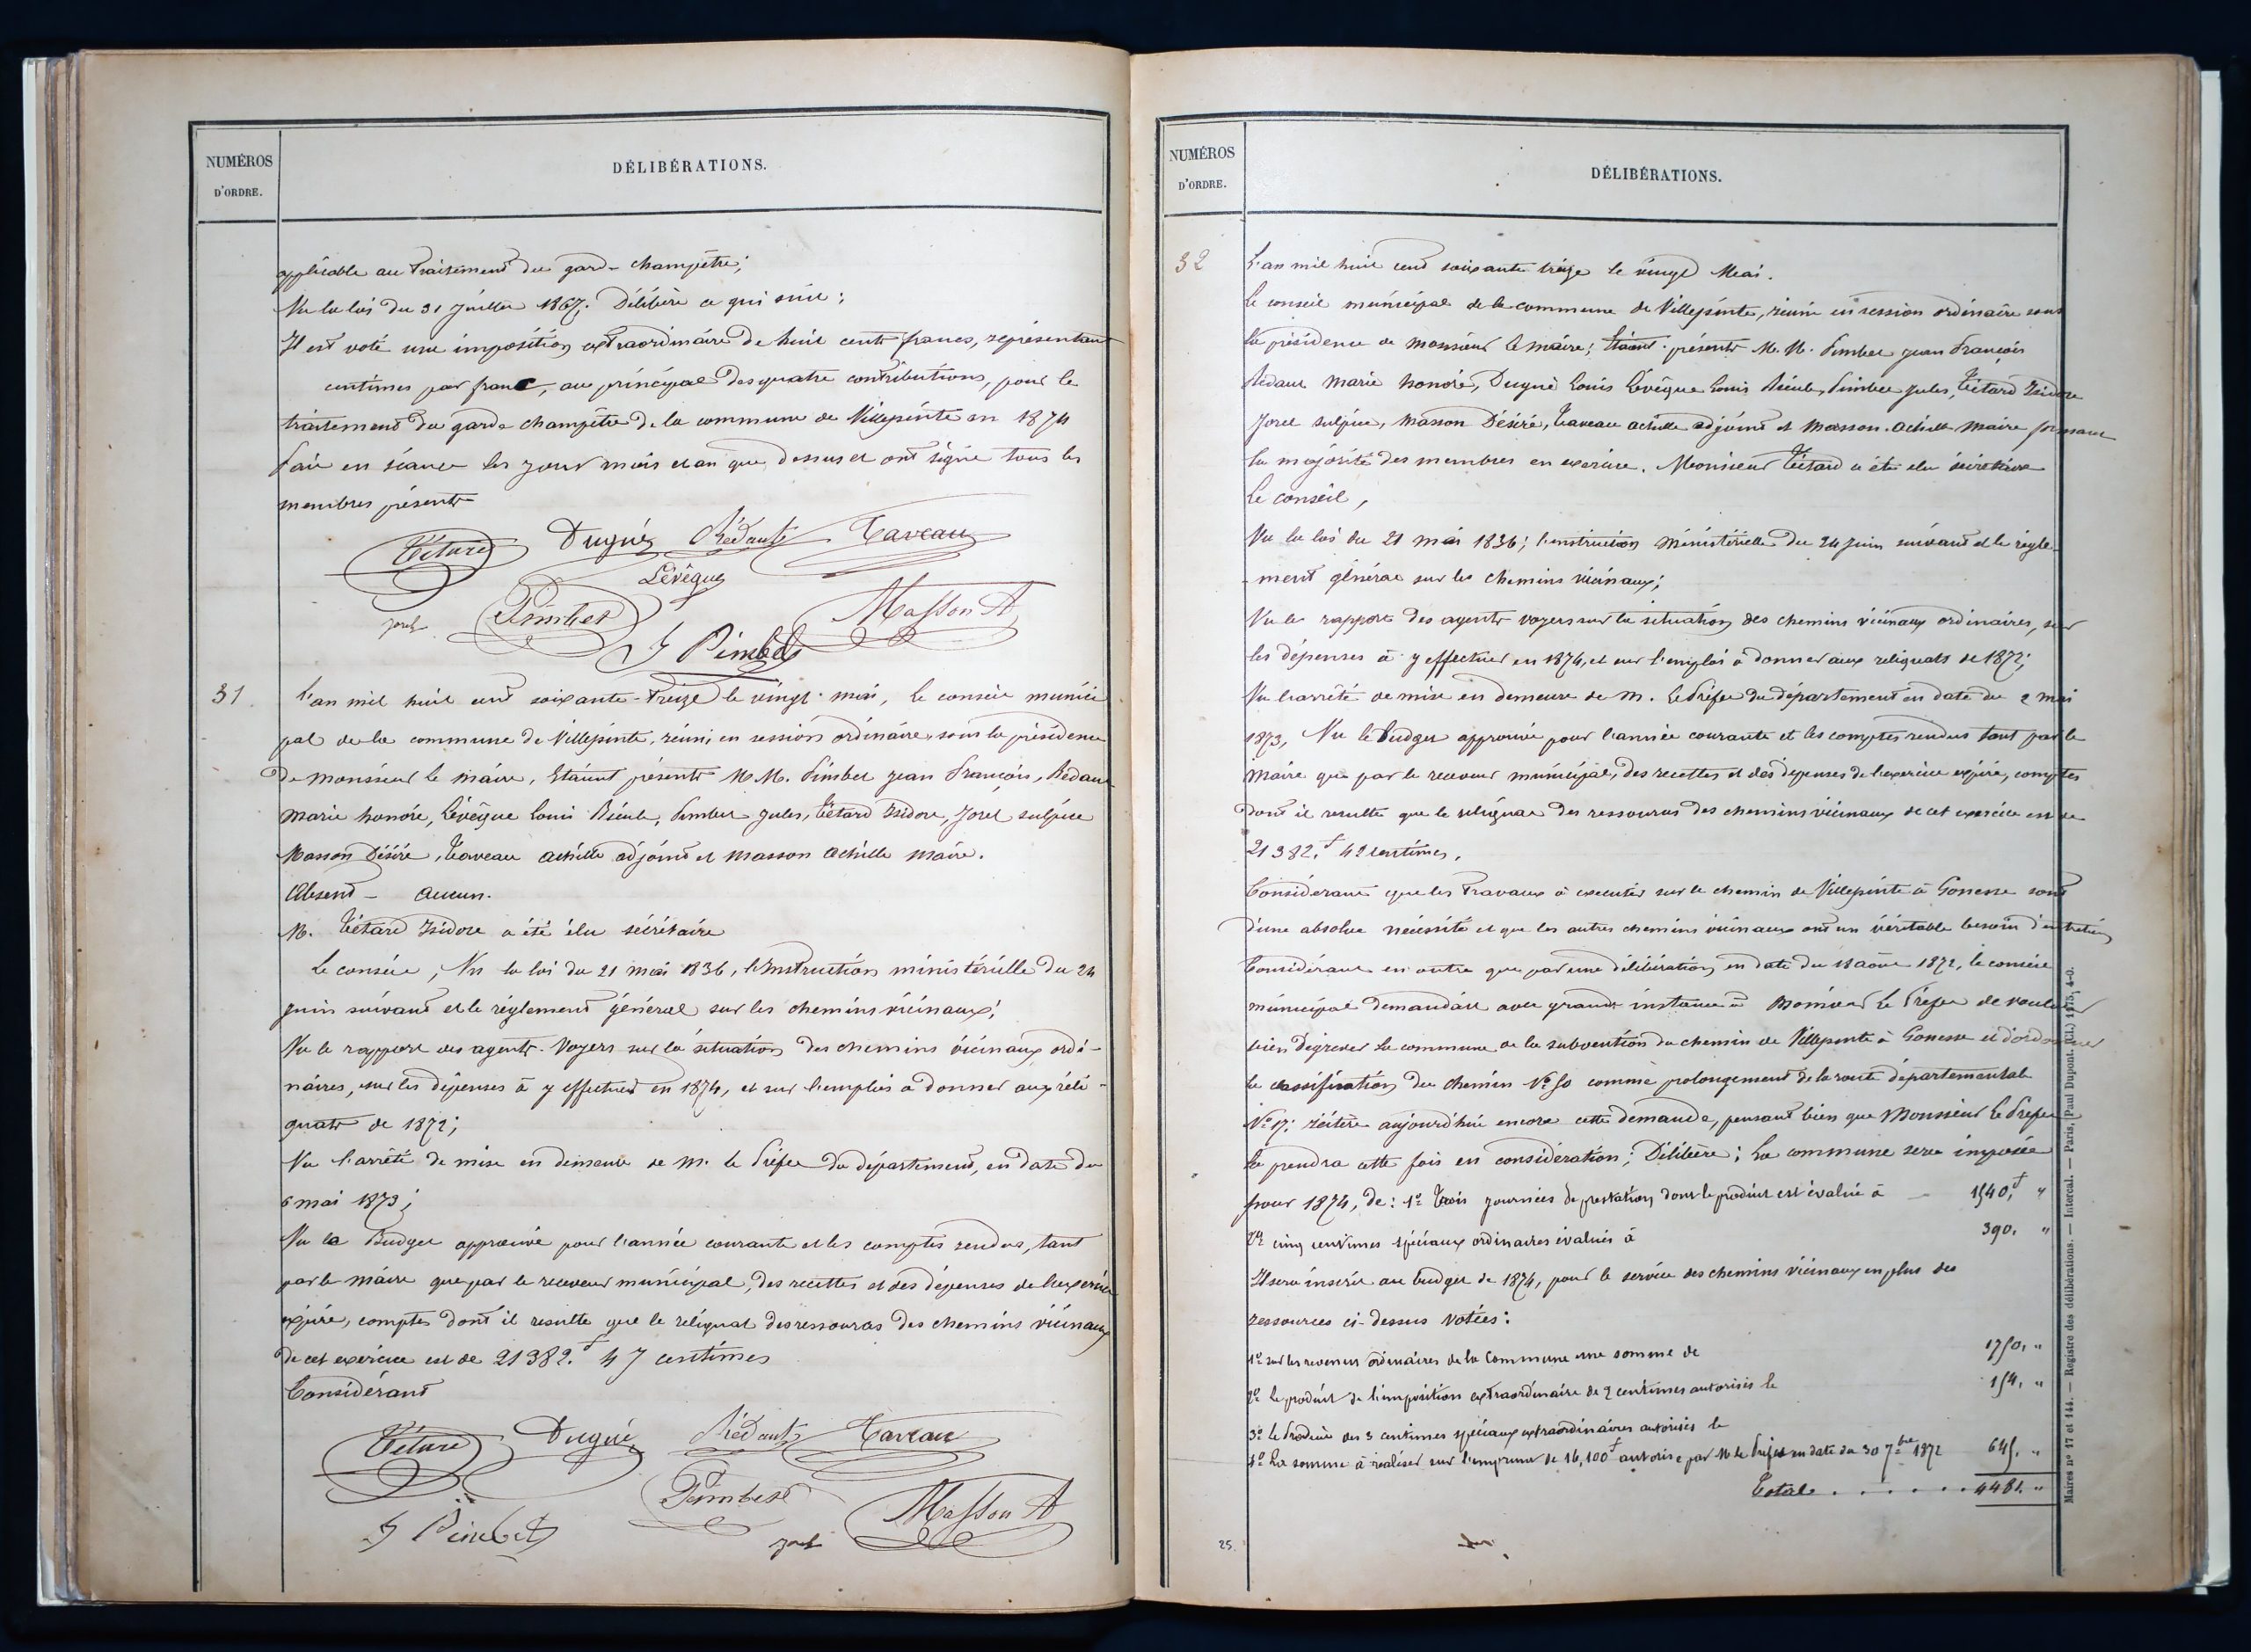 NUMÉROS
D'ORDRE.
DÉLIBÉRATIONS.
applicable au traitement du garde champêtre;
Vu la loi du 31 Juillet 1867. Délibère ce qui suit;
Il est voté une imposition extraordinaire de huit cents francs, représentant
centimes par franc, au principal des quatre contributions, pour le
traitement du garde champêtre de la commune de Villepinte en 1874
Fait en séance les jour mois et an que dessus et ont signé tous les
membres présents
Tétard Dugué Rédaut Taveau
Lévêque
Jorel Pimbet Masson A
J Pimbet
31. L'an mil huit cent soixante-treize le vingt mai, le conseil munici
pal de la commune de Villepinte, réuni en session ordinaire, sous la présidence
de monsieur le maire, Etaient présents M.M. Pimbet jean François, Redaut
marie honoré, Lévêque Louis Pimbet Jules, Tétard Isidore, Jorel sulpice
Masson Désiré, Taveau achille adjoint et masson achille maire.
Absent - aucun.
M. Tétard Isidore a été élu sécrétaire
Le conseil, Vu la loi du 21 mai 1836, l'Instruction ministérielle du 24
juin suivant et le réglement général sur les chemins vicinaux;
Vu le rapport des agents-voyers sur la situation des chemins vicinaux ordi-
naires, sur les dépenses à y effectuer en 1874, et sur l'emploi a donner aux reli-
quats de 1872;
Vu l'arrêté de mise en demeure de M. le Préfet du département, en date du
6 mai 1873;
Vu le Budget approuvé pour l'année courante et les comptes rendus, tant
par le maire que par le receveur municipal, des recettes et des dépenses de l'exercice
expiré, comptes dont il resulte que le reliquat des ressources des chemins vicinaux
de cet exercice est de 21382.f 47 centimes
Considérant
Tétard Dugué Rédaut Taveau
J Pimbet Pimbet Jorel Masson A
NUMÉROS
D'ORDRE.
DÉLIBÉRATIONS.
32 L'an mil huit cent soixante treize le vingt Mai.
Le conseil municipal de la commune de Villepinte, réuni en session ordinaire sous
la présidence de monsieur le maire; étaient présents M.M. Pimbet jean François
Rédaut Marie honoré, Dugué Louis Lévêque Louis Pimbet Jules, Tétard Isidore
Jorel sulpice, Masson Désiré, Taveau achille adjoint et Masson achille maire formant
la majorité des membres en exercice. Monsieur Tétard a été elu secretaire
Le conseil,
Vu la loi du 21 mai 1836; l'instruction Ministérielle du 24 Juin suivant et le règle-
-ment général sur les chemins vicinaux;
Vu le rapport des agents voyers sur la situation des chemins vicinaux ordinaires, sur
les dépenses à y effectuer en 1874, et sur l'emploi a donner aux reliquats de 1872;
Vu l'arrêté de mise en demeure de M. le Préfet du département en date du 2 mai
1873, Vu le Budget approuvé pour l'année courante et les comptes rendus tant par le
Maire que par le receveur municipal, des recettes et des dépenses de l'exercice expiré, comptes
dont il resulte que le reliquat des ressources des chemins vicinaux de cet exercice est de
21382.f 42 centimes.
Considerant que les travaux à executer sur le chemin de Villepinte à Gonesse sont
d'une absolue nécéssité et que les autres chemins vicinaux ont un véritable besoin d'entretien
Considérant en outre que par une délibération en date du 18 août 1872, le conseil
municipal demandait avec grande instance à Monsieur le Préfet de vouloir
bien dégrever la commune de la subvention du chemin de Villepinte à Gonesse et d'ordonner
la classification du chemin No 50 comme prolongement de la route départementale
No 17; réitère aujourd'hui encore cette demande, pensant bien que Monsieur le Prefet
la prendra cette fois en considération; Délibère; La commune sera imposée
pour 1874, de: 1o Trois journées de prestation dont le produit est évalué à 1540,f "
2o cinq centimes spéciaux ordinaires évalués à 390. "
Il sera inscrit au budget de 1874, pour le service des chemins vicinaux en plus des
ressources ci-dessus votées:
1o sur les revenus ordinaires de la Commune une somme de 1750, "
2o le produit de l'imposition extraordinaire de 2 centimes autorisés le 154, "
3o le Produit des 3 centimes spéciaux extraordinaires autorisés le
4o La somme à réaliser sur l'emprunt de 16,100f autorisé par M le Préfet en date du 30 7bre 1872 645. "
Total . . . . . . 4481. "
25.
Maires nos 17 et 144. — Registre des délibérations. — Intercal. — Paris, Paul Dupont. (Cl.) 1175, 4-0.